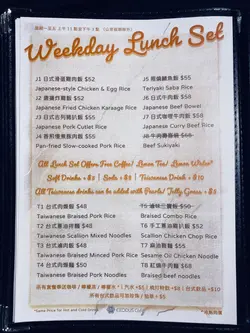 Weekday Lunch Set
J1 日式滑蛋雞肉飯 $52
Japanese-style Chicken & Egg Rice
J2 唐揚炸雞飯 $52
Japanese Fried Chicken Karaage Rice
J3 吉列豬扒飯 $55
Japanese Pork Cutlet Rice
J4 香煎豬肉飯 $55
Pan-fried Slow-cooked Pork Rice
J5 $55
Teriyaki Saba Rice
J6 日式牛肉飯 $58
Japanese Beef Bowel
J7 日式咖喱牛肉飯 $58
Japanese Curry Beef Rice
$68
Sukiyaki
All Lunch Set Offers Free Coffee/ Lemon Tea/ Lemon Water*
Soft Drinks + $3 | Soda + $8 | Taiwanese Drink + $10
All Taiwanese drinks can be added with Pearls/ Jelly Grass + $5
T1 台式肉燥飯 $48
Taiwanese Braised Pork Rice
T2 台式蔥油拌麵 $48
Taiwanese Scallion Mixed Noodles
T3 台式滷肉飯 $48
Taiwanese Braised Minced Pork Rice
T4 台式肉燥麵 $50
Taiwanese Braised Pork Noodles
T5 $50
Braised Combo Rice
T6 $52
Scallion Chicken Chop Rice
T7 麻油雞麵 $55
Sesame Oil Chicken Noodle
T8 紅燒牛肉麵 $68
Braised Beef noodles
*Same Price for Hot and Cold Drinks